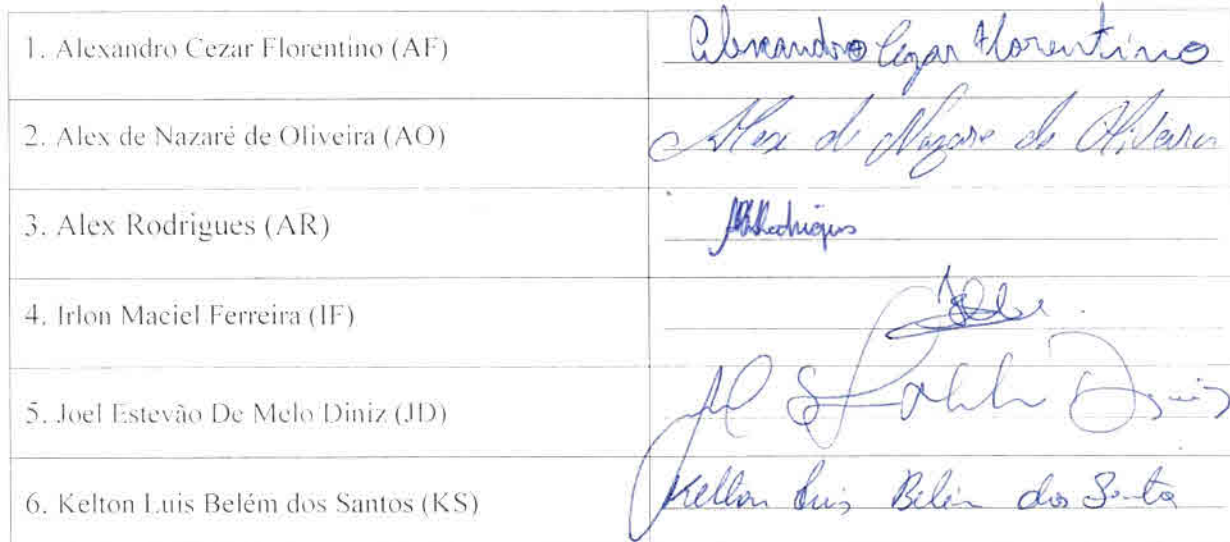 1. Alexandro Cezar Florentino (AF)
Alexandro Cezar Florentino
2. Alex de Nazaré de Oliveira (AO)
Alex de Nazare de Oliveira
3. Alex Rodrigues (AR)
Rodrigues
4. Irlon Maciel Ferreira (IF)
5. Joel Estevão De Melo Diniz (JD)
6. Kelton Luis Belém dos Santos (KS)
Kelton Luis Belém dos Santos